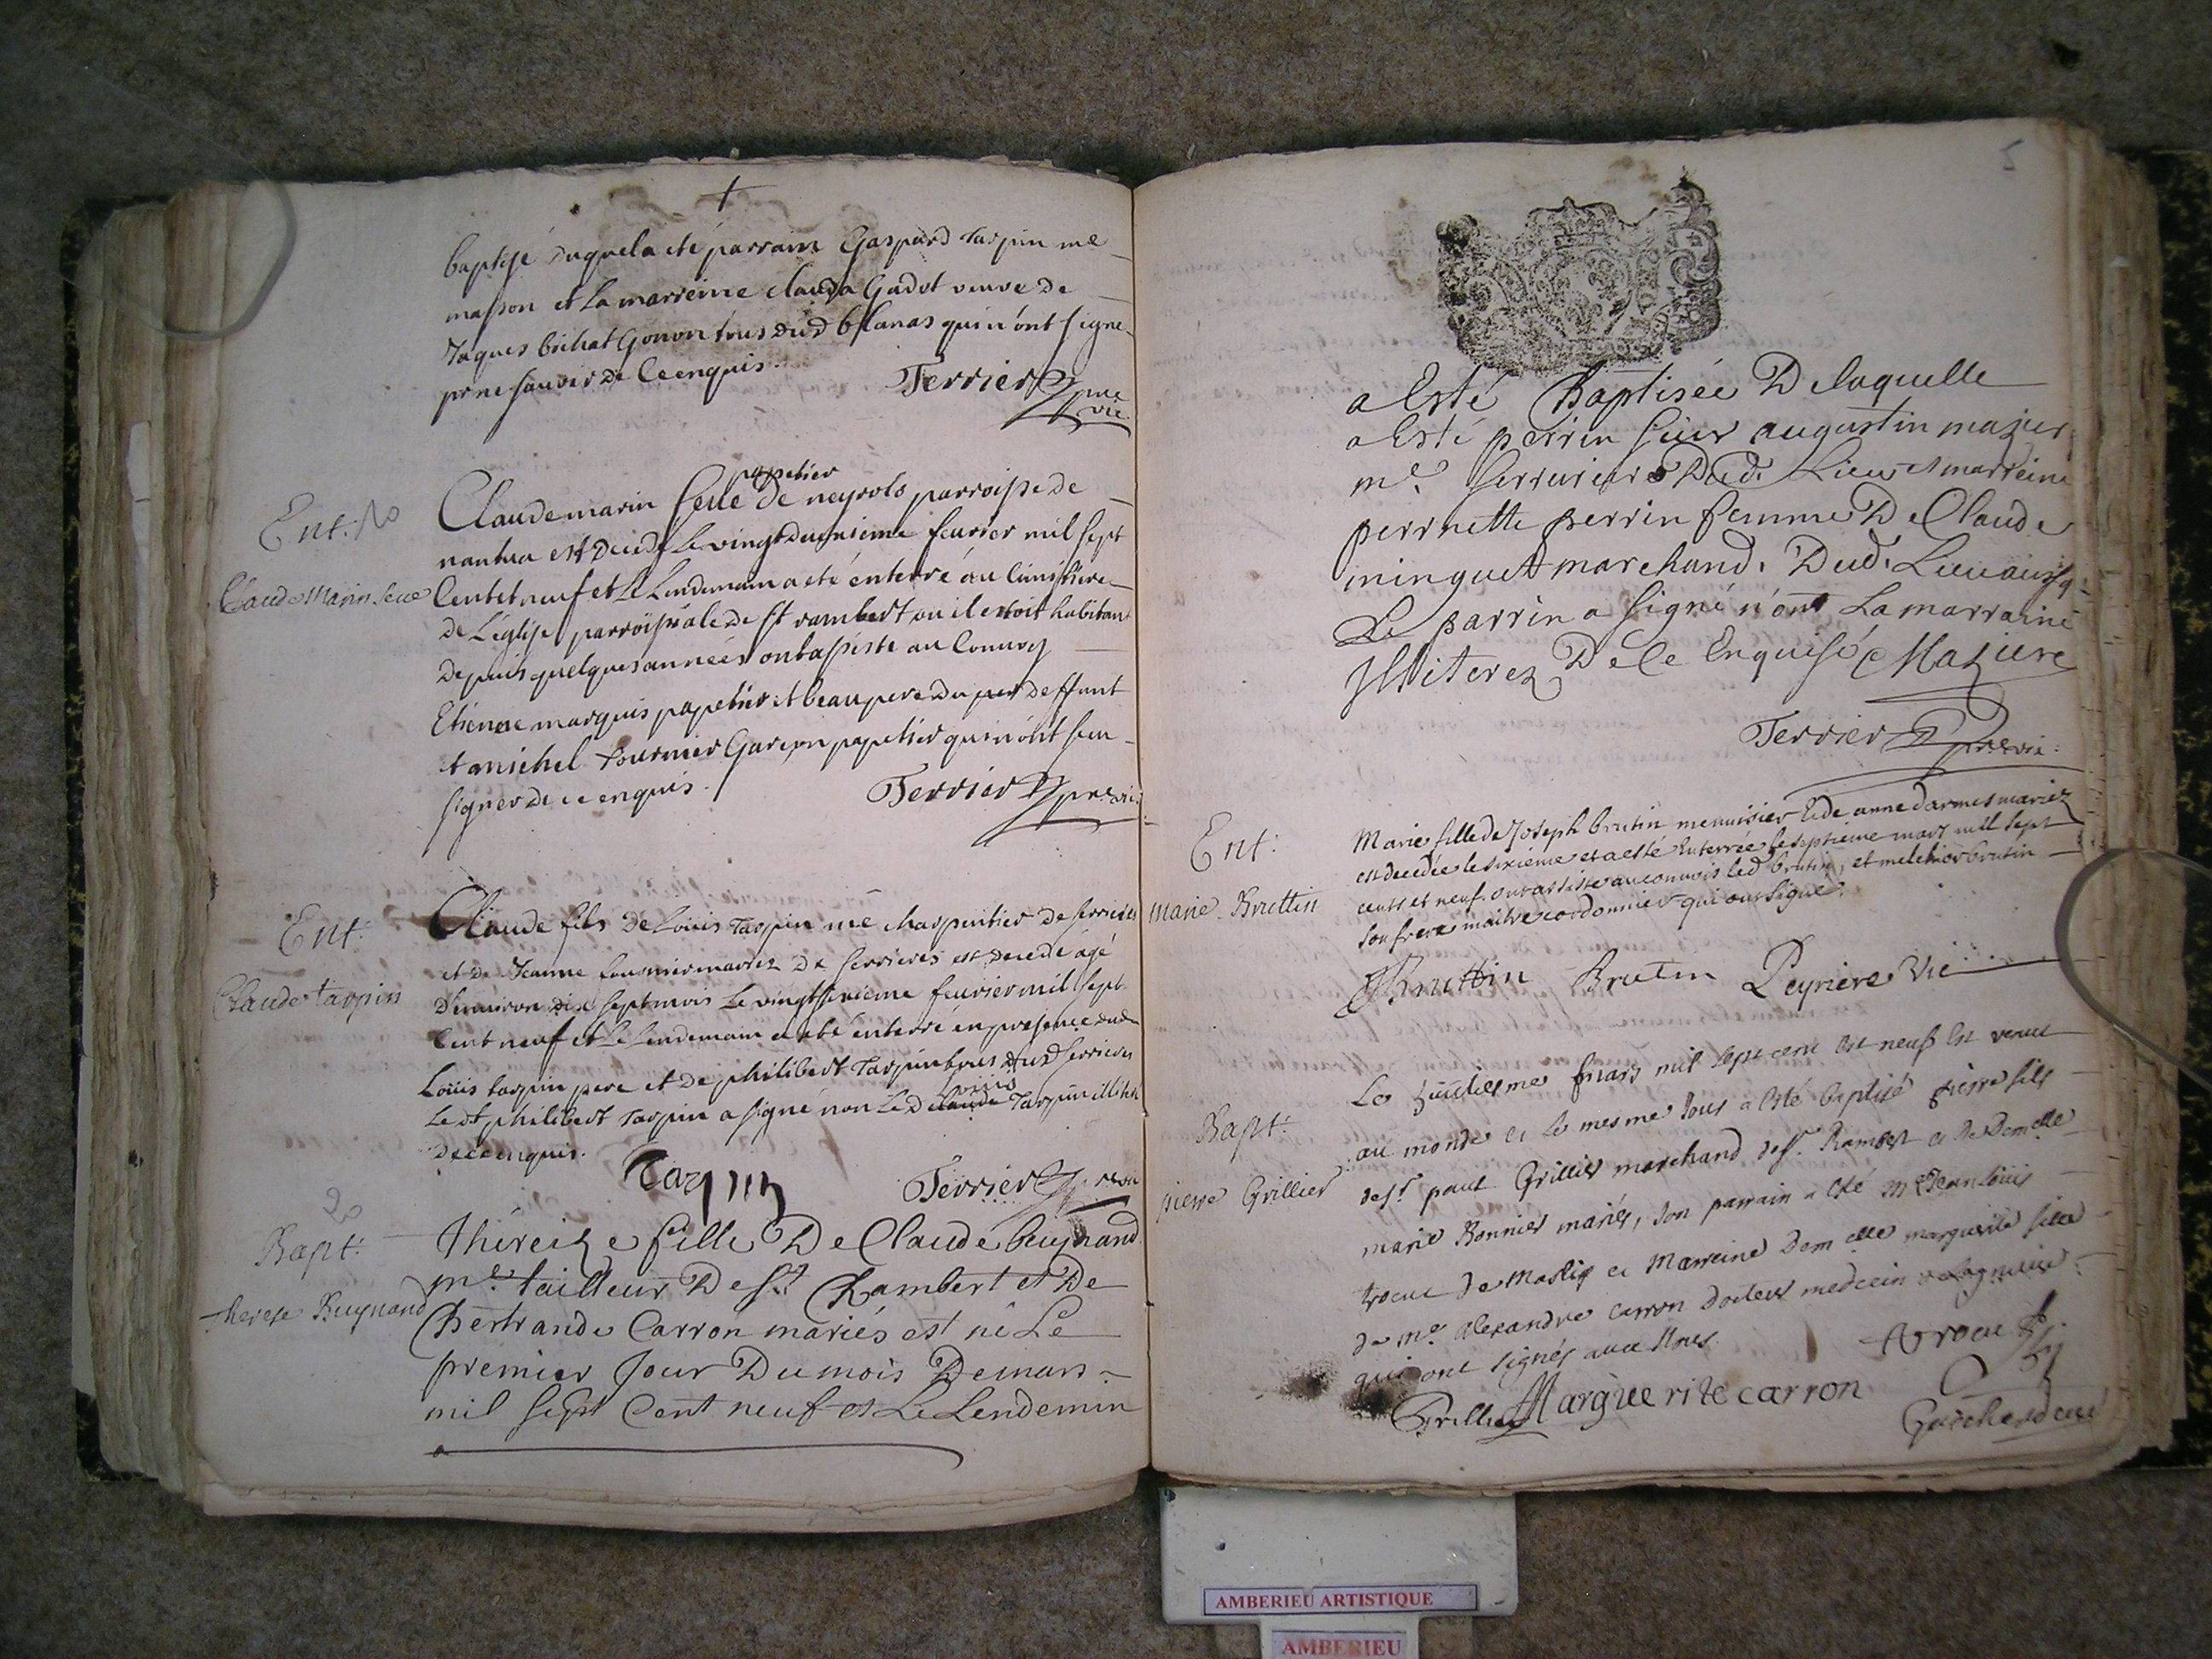 baptisé duquel a eté parrain Gaspard Tarpin me
masson et la marreine clauda Gadot veuve de
Jaques brihat Gonon tous dud blanas qui n'ont signe
pr ne sauoir de ce enquis.
Terrier pre vic.
Ent:
Claude Marin Seue
papetier
Claude marin seue de neyrols parroisse de
nantua est decede le vingt deuxieme feurier mil sept
Cent et neuf et le lendemain a eté énterré au Cimistiere
de L'églïse parroissiale de st rambert ou il estoit habitant
depuis quelques années ont assisté au Conuoy
Etienne marquis papetier et beaupere du deffunt
et michel fournier Garçon papetier qui n'ont seu
signer de ce enquis.
Terrier pre vic.
Ent:
Claude tarpin
Claude fils de Loüis Tarpin me charpentier de serrieres
et de Jeanne fournier mariez de serrieres est decedé agé
d'enuiron dix sept mois le vingt sixieme feurier mil sept
Cent neuf et le lendemain a eté énterré en presence dud
Loüis tarpin pere et de philibert Tarpin tous dud serrieres
Loüis
Le dt philibert Tarpin a signé non Le d claude Tarpin illitere
de ce enquis.
Tarpin
Terrier pre vic
2o
Bapt:
therese Buynand
Thireize fille De Claude buynand
me tailleur De st Rambert et De
Bertrande Carron mariés est né Le
premier Jour Du mois De mars
mil sept Cent neuf et Le Lendemin
5
a Esté Baptisée De laquelle
a Esté perrin sieur augustin mazier
me serrurier Dud. Lieu et marreine
perrnette perrin femme De Claude
minguet marchand. Dud. Lieu
Le parrin a signé n'ont La marraine
Jlliterez De Ce Enquisé Maziere
Terrier pre vic.
Ent:
Marie Bruttin
Marie fille de Joseph brutin menuisier et de anne darmes mariez
est decedée le sixieme et a esté Enterrée le septieme mars mil sept
cents et neuf. ont assiste au conuois led brutin, et melchior brutin
son frere maitre cordonnier qui ont signe.
JBruttin Brutin Peyriere vic
Bapt:
pierre Grillier
Le huictiesme mars mil sept cent et neuf est venut
au monde et le mesme Jour a esté baptisé pierre fils
de sr paul Grillier marchand de st. Rambert et de Demelle
marie Bonnier mariés, son parrain a esté Mre Jean Loüis
trocu de et Marreine Demelle marguerite fille
de me alexandre carron docteur medecin de lagnieu
qui ont signés auec nous.
trocu
Grillier Marguerite carron
AMBERIEU ARTISTIQUE
AMBERIEU